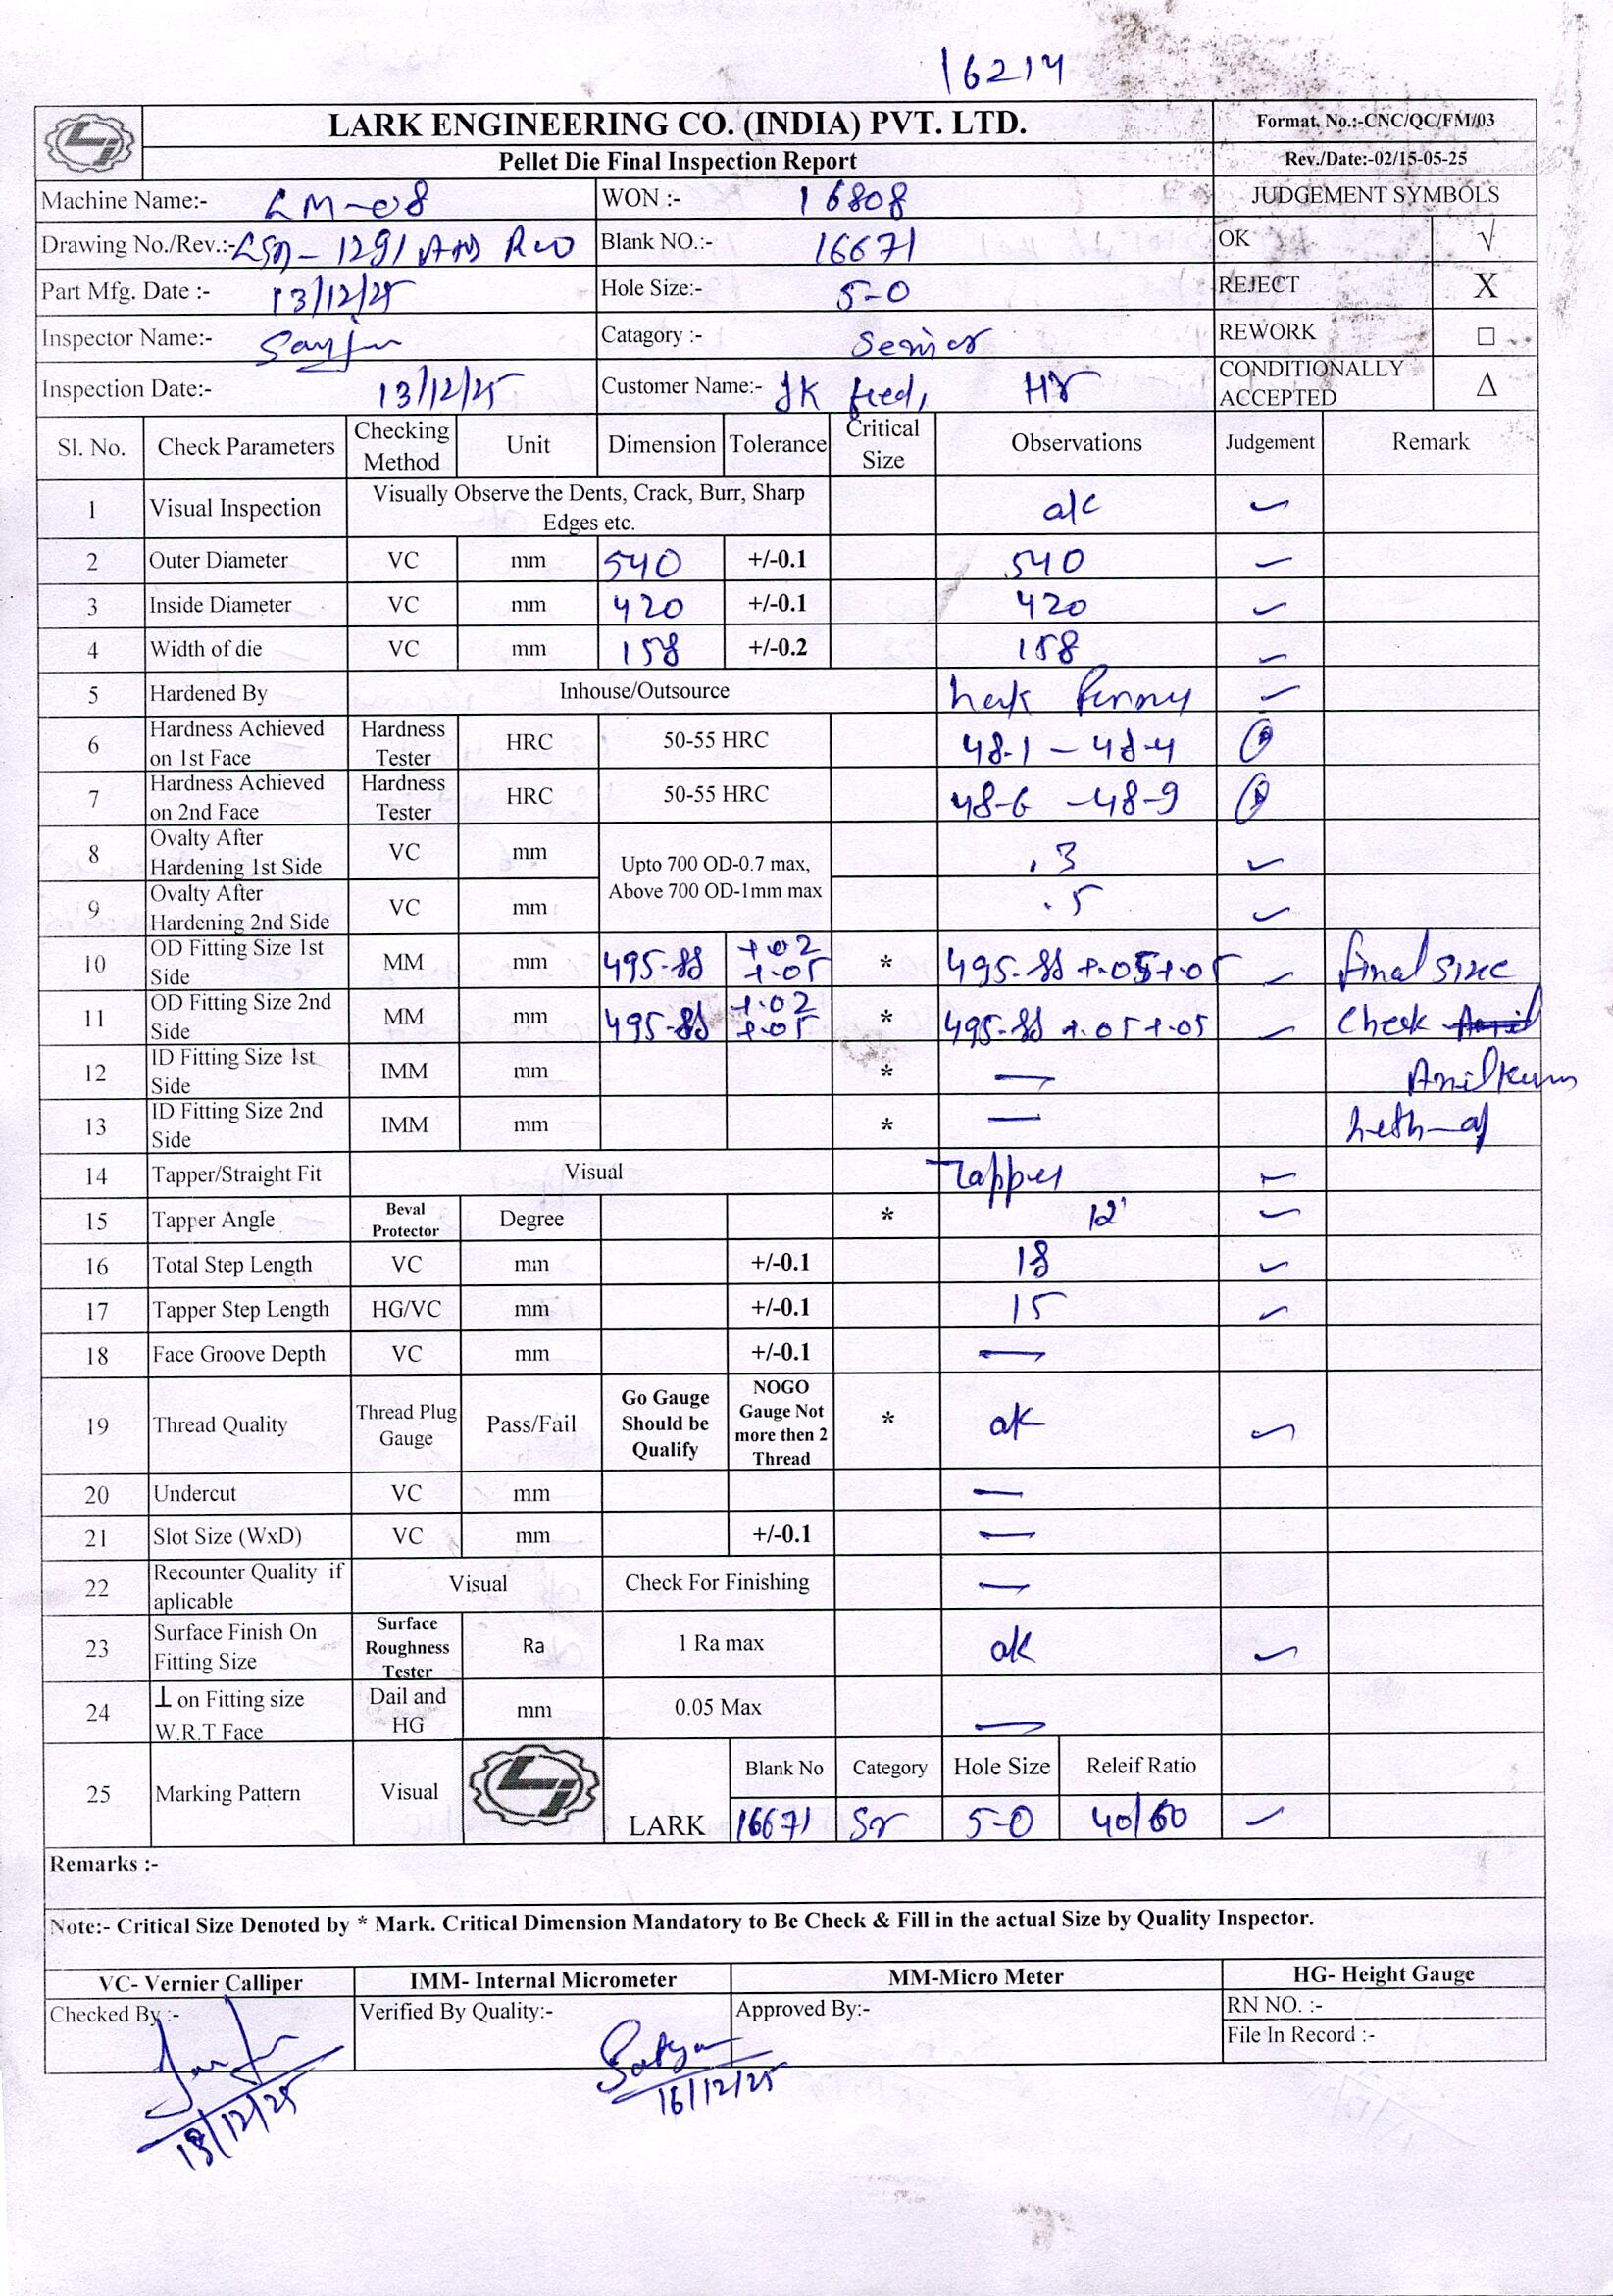 16214
LARK ENGINEERING CO. (INDIA) PVT. LTD.
Format. No.:-CNC/QC/FM/03
Pellet Die Final Inspection Report
Rev./Date:-02/15-05-25
Machine Name:- LM-08 WON :- 16808 JUDGEMENT SYMBOLS
Drawing No./Rev.:- 1291 Blank NO.:- 16671 OK √
Part Mfg. Date :- 13/12/25 Hole Size:- 5-0 REJECT X
Inspector Name:- Catagory :- Senior REWORK □
Inspection Date:- 13/12/25 Customer Name:- JK feed, Hr CONDITIONALLY ACCEPTED Δ
Sl. No. Check Parameters Checking Method Unit Dimension Tolerance Critical Size Observations Judgement Remark
1 Visual Inspection Visually Observe the Dents, Crack, Burr, Sharp Edges etc. ok ✓
2 Outer Diameter VC mm 540 +/-0.1 540 ✓
3 Inside Diameter VC mm 420 +/-0.1 420 ✓
4 Width of die VC mm 158 +/-0.2 158 ✓
5 Hardened By Inhouse/Outsource ✓
6 Hardness Achieved on 1st Face Hardness Tester HRC 50-55 HRC 48-1 - 48-4
7 Hardness Achieved on 2nd Face Hardness Tester HRC 50-55 HRC 48-6 - 48-9
8 Ovalty After Hardening 1st Side VC mm Upto 700 OD-0.7 max, Above 700 OD-1mm max .3 ✓
9 Ovalty After Hardening 2nd Side VC mm .5 ✓
10 OD Fitting Size 1st Side MM mm 495-88 +.02 +.05 * 495-88 +.05+.05 ✓ final size
11 OD Fitting Size 2nd Side MM mm 495-88 +.02 +.05 * 495-88 +.05+.05 ✓ Check
12 ID Fitting Size 1st Side IMM mm * — Anilkum
13 ID Fitting Size 2nd Side IMM mm * —
14 Tapper/Straight Fit Visual Tapper ✓
15 Tapper Angle Beval Protector Degree * 12' ✓
16 Total Step Length VC mm +/-0.1 18 ✓
17 Tapper Step Length HG/VC mm +/-0.1 15 ✓
18 Face Groove Depth VC mm +/-0.1 —
19 Thread Quality Thread Plug Gauge Pass/Fail Go Gauge Should be Qualify NOGO Gauge Not more then 2 Thread * ok ✓
20 Undercut VC mm —
21 Slot Size (WxD) VC mm +/-0.1 —
22 Recounter Quality if aplicable Visual Check For Finishing —
23 Surface Finish On Fitting Size Surface Roughness Tester Ra 1 Ra max ok ✓
24 ⊥ on Fitting size W.R.T Face Dail and HG mm 0.05 Max —
25 Marking Pattern Visual LARK Blank No Category Hole Size Releif Ratio
16671 Sr 5-0 40/60 ✓
Remarks :-
Note:- Critical Size Denoted by * Mark. Critical Dimension Mandatory to Be Check & Fill in the actual Size by Quality Inspector.
VC- Vernier Calliper IMM- Internal Micrometer MM-Micro Meter HG- Height Gauge
Checked By :- Verified By Quality:- Approved By:- RN NO. :-
File In Record :-
Satyam
16/12/25